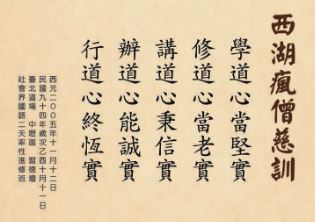 西湖瘋僧慈訓
學道心當堅實
修道心當老實
講道心秉信實
辦道心能誠實
行道心終恆實
西元二○○五年十一月十二日
民國九十四年歲次乙酉十月十一日
臺北道場 中壢區 盟德壇
社會界國語二天率性進修班